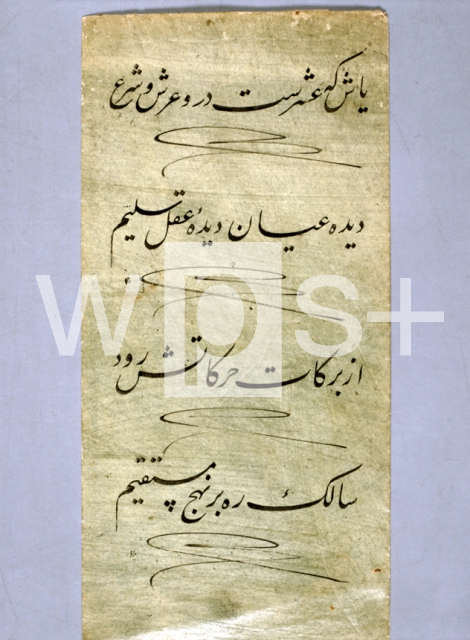 یاش که عشرست در و عرش و شرع
دیده عیان دیدهٔ عقل سلیم
از برکات حرکاتش رود
سالک ره بر نهج مستقیم
wps+